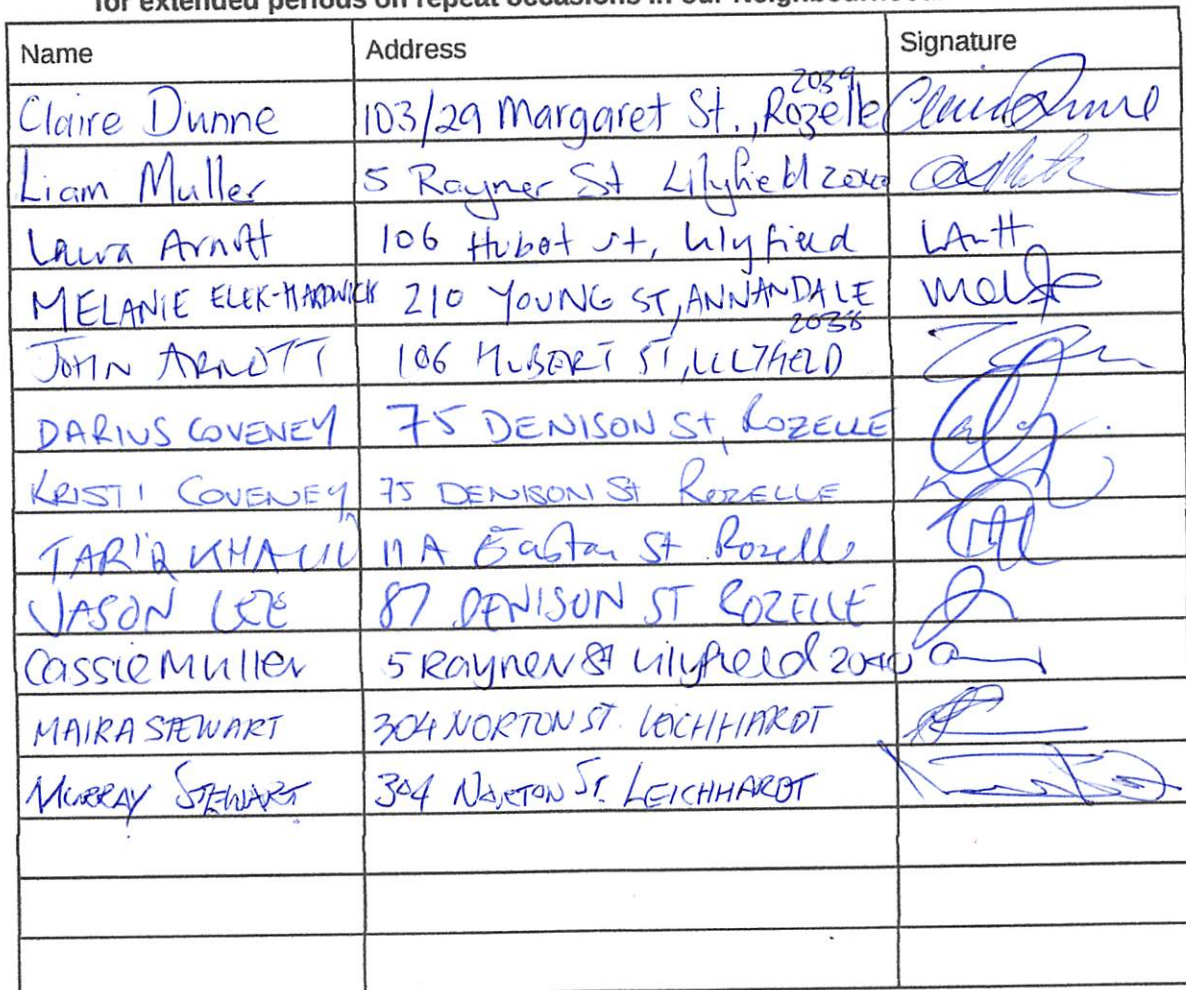 for extended periods on repeat occasions in our Neighbourhood
Name Address Signature
Claire Dunne 103/29 Margaret St., Rozelle 2039
Liam Muller 5 Rayner St Lilyfield 2040
Laura Arnott 106 Hubot st, Lilyfield LArtt
MELANIE ELEK-HARDWICK 210 YOUNG ST, ANNANDALE 2038
JOHN ARNOTT 106 HUBERT ST, LILYFIELD
DARIUS COVENEY 75 DENISON St, ROZELLE
KRISTI COVENEY 75 DENISON St ROZELLE
TARIQ KHALIL 11A Easton St Rozelle
JASON LEE 87 DENISON ST ROZELLE
Cassie Muller 5 Rayner St Lilyfield 2040
MAIRA STEWART 304 NORTON ST. LEICHHARDT
MURRAY STEWART 304 NORTON ST. LEICHHARDT